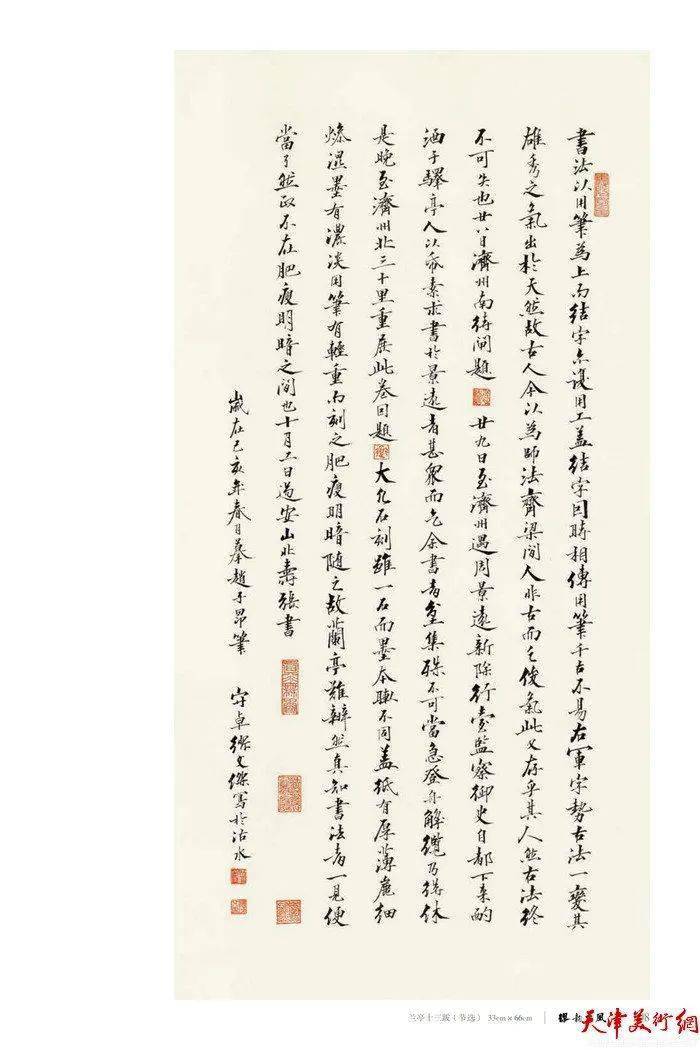 書法以用筆為上而結字亦須用工盖結字因時相傳用筆千古不易右軍字勢古法一變其
雄秀之氣出於天然故古人今以為師法齊梁間人非古而乏俊氣此又存乎其人然古法終
不可失也廿八日濟州南待閘題 廿九日至濟州遇周景遠新除行臺監察御史自都下来酌
酒于驛亭人以帋素求書於景遠者甚眾而乞余書者坌集殊不可當急登舟解纜乃得休
是晚至濟州北三十里重展此卷因題 大凡石刻雖一石而墨本輒不同盖紙有厚薄麁細
燥濕墨有濃淡用筆有輕重而刻之肥瘦明暗隨之故蘭亭難辨然真知書法者一見便
當了然政不在肥瘦明暗之間也十月二日過安山北壽張書
歲在己亥年春月摹趙子昂筆 守卓繆文傑寫於沽水
兰亭十三跋（节选） 33cm×66cm
天津美術網